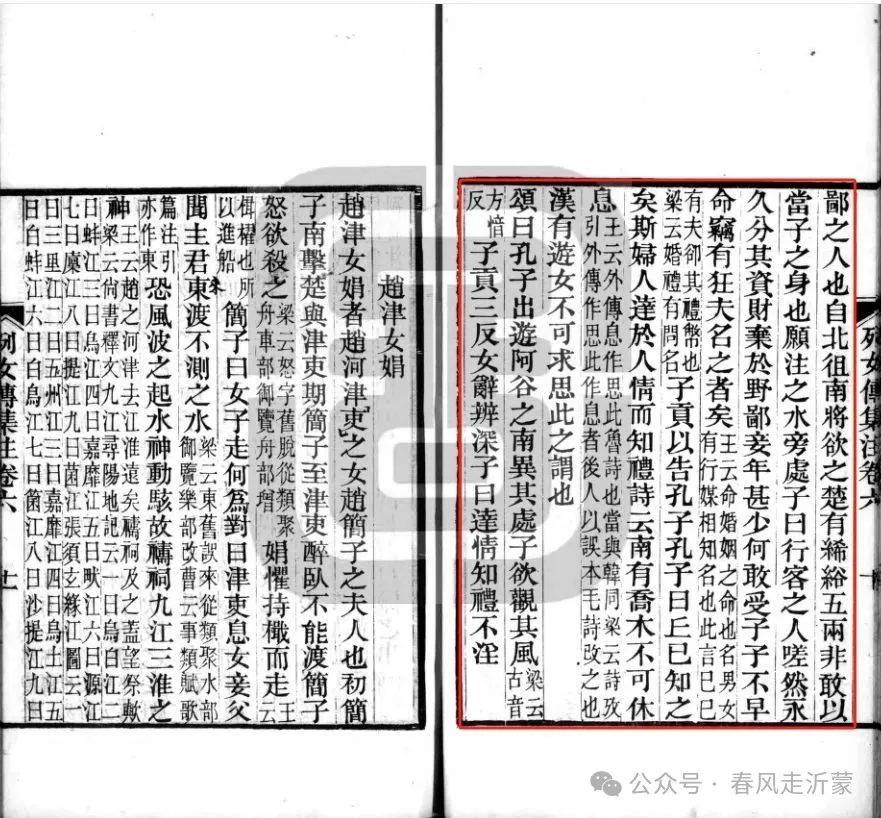 鄙之人也自北徂南將欲之楚有絺綌五兩非敢以
當子之身也願注之水旁處子曰行客之人嗟然永
久分其資財棄於野鄙妾年甚少何敢受子子不早
命竊有狂夫名之者矣王云命婚姻之命也名男女有行媒相知名也此言巳巳
有夫卻其禮幣也梁云婚禮有問名子貢以告孔子孔子曰丘已知之
矣斯婦人達於人情而知禮詩云南有喬木不可休
息王云外傳息作思此魯詩也當與韓同梁云詩攷引外傳作思此作息者後人以誤本毛詩改之也
漢有遊女不可求思此之謂也
頌曰孔子出遊阿谷之南異其處子欲觀其風梁云古音
方愔反子貢三反女辭辨深子曰達情知禮不淫
列女傳集注卷六
趙津女娟
趙津女娟者趙河津吏之女趙簡子之夫人也初簡
子南擊楚與津吏期簡子至津吏醉臥不能渡簡子
怒欲殺之梁云怒字舊脫從類聚舟車部御覽舟部增娟懼持檝而走王云
檝櫂也所以進船簡子曰女子走何爲對曰津吏息女妾父
聞主君東渡不測之水梁云東舊誤來從類聚水部御覽樂部改曹云事類賦歌
篇注引亦作東恐風波之起水神動駭故禱祠九江三淮之
神王云趙之河津去江淮遠矣禱祠及之蓋望祭歟梁云尚書釋文九江尋陽地記云一曰烏白江二
曰蚌江三曰烏江四曰嘉靡江五曰畎江六曰源江七曰廩江八曰提江九曰菌江張須玄緣江圖云一
曰三里江二曰五州江三曰嘉靡江四曰烏土江五曰白蚌江六曰白烏江七曰菌江八曰沙提江九曰
列女傳集注卷六 十一
公众号 · 春风走沂蒙